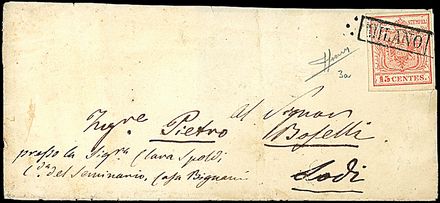 STEMPEL
MILANO
15 CENTES.
3a
Al Signor
Ing.re Pietro Boselli
presso la Sig.ra Clara Spoldi
C.da del Seminario, Casa Bignami
Lodi